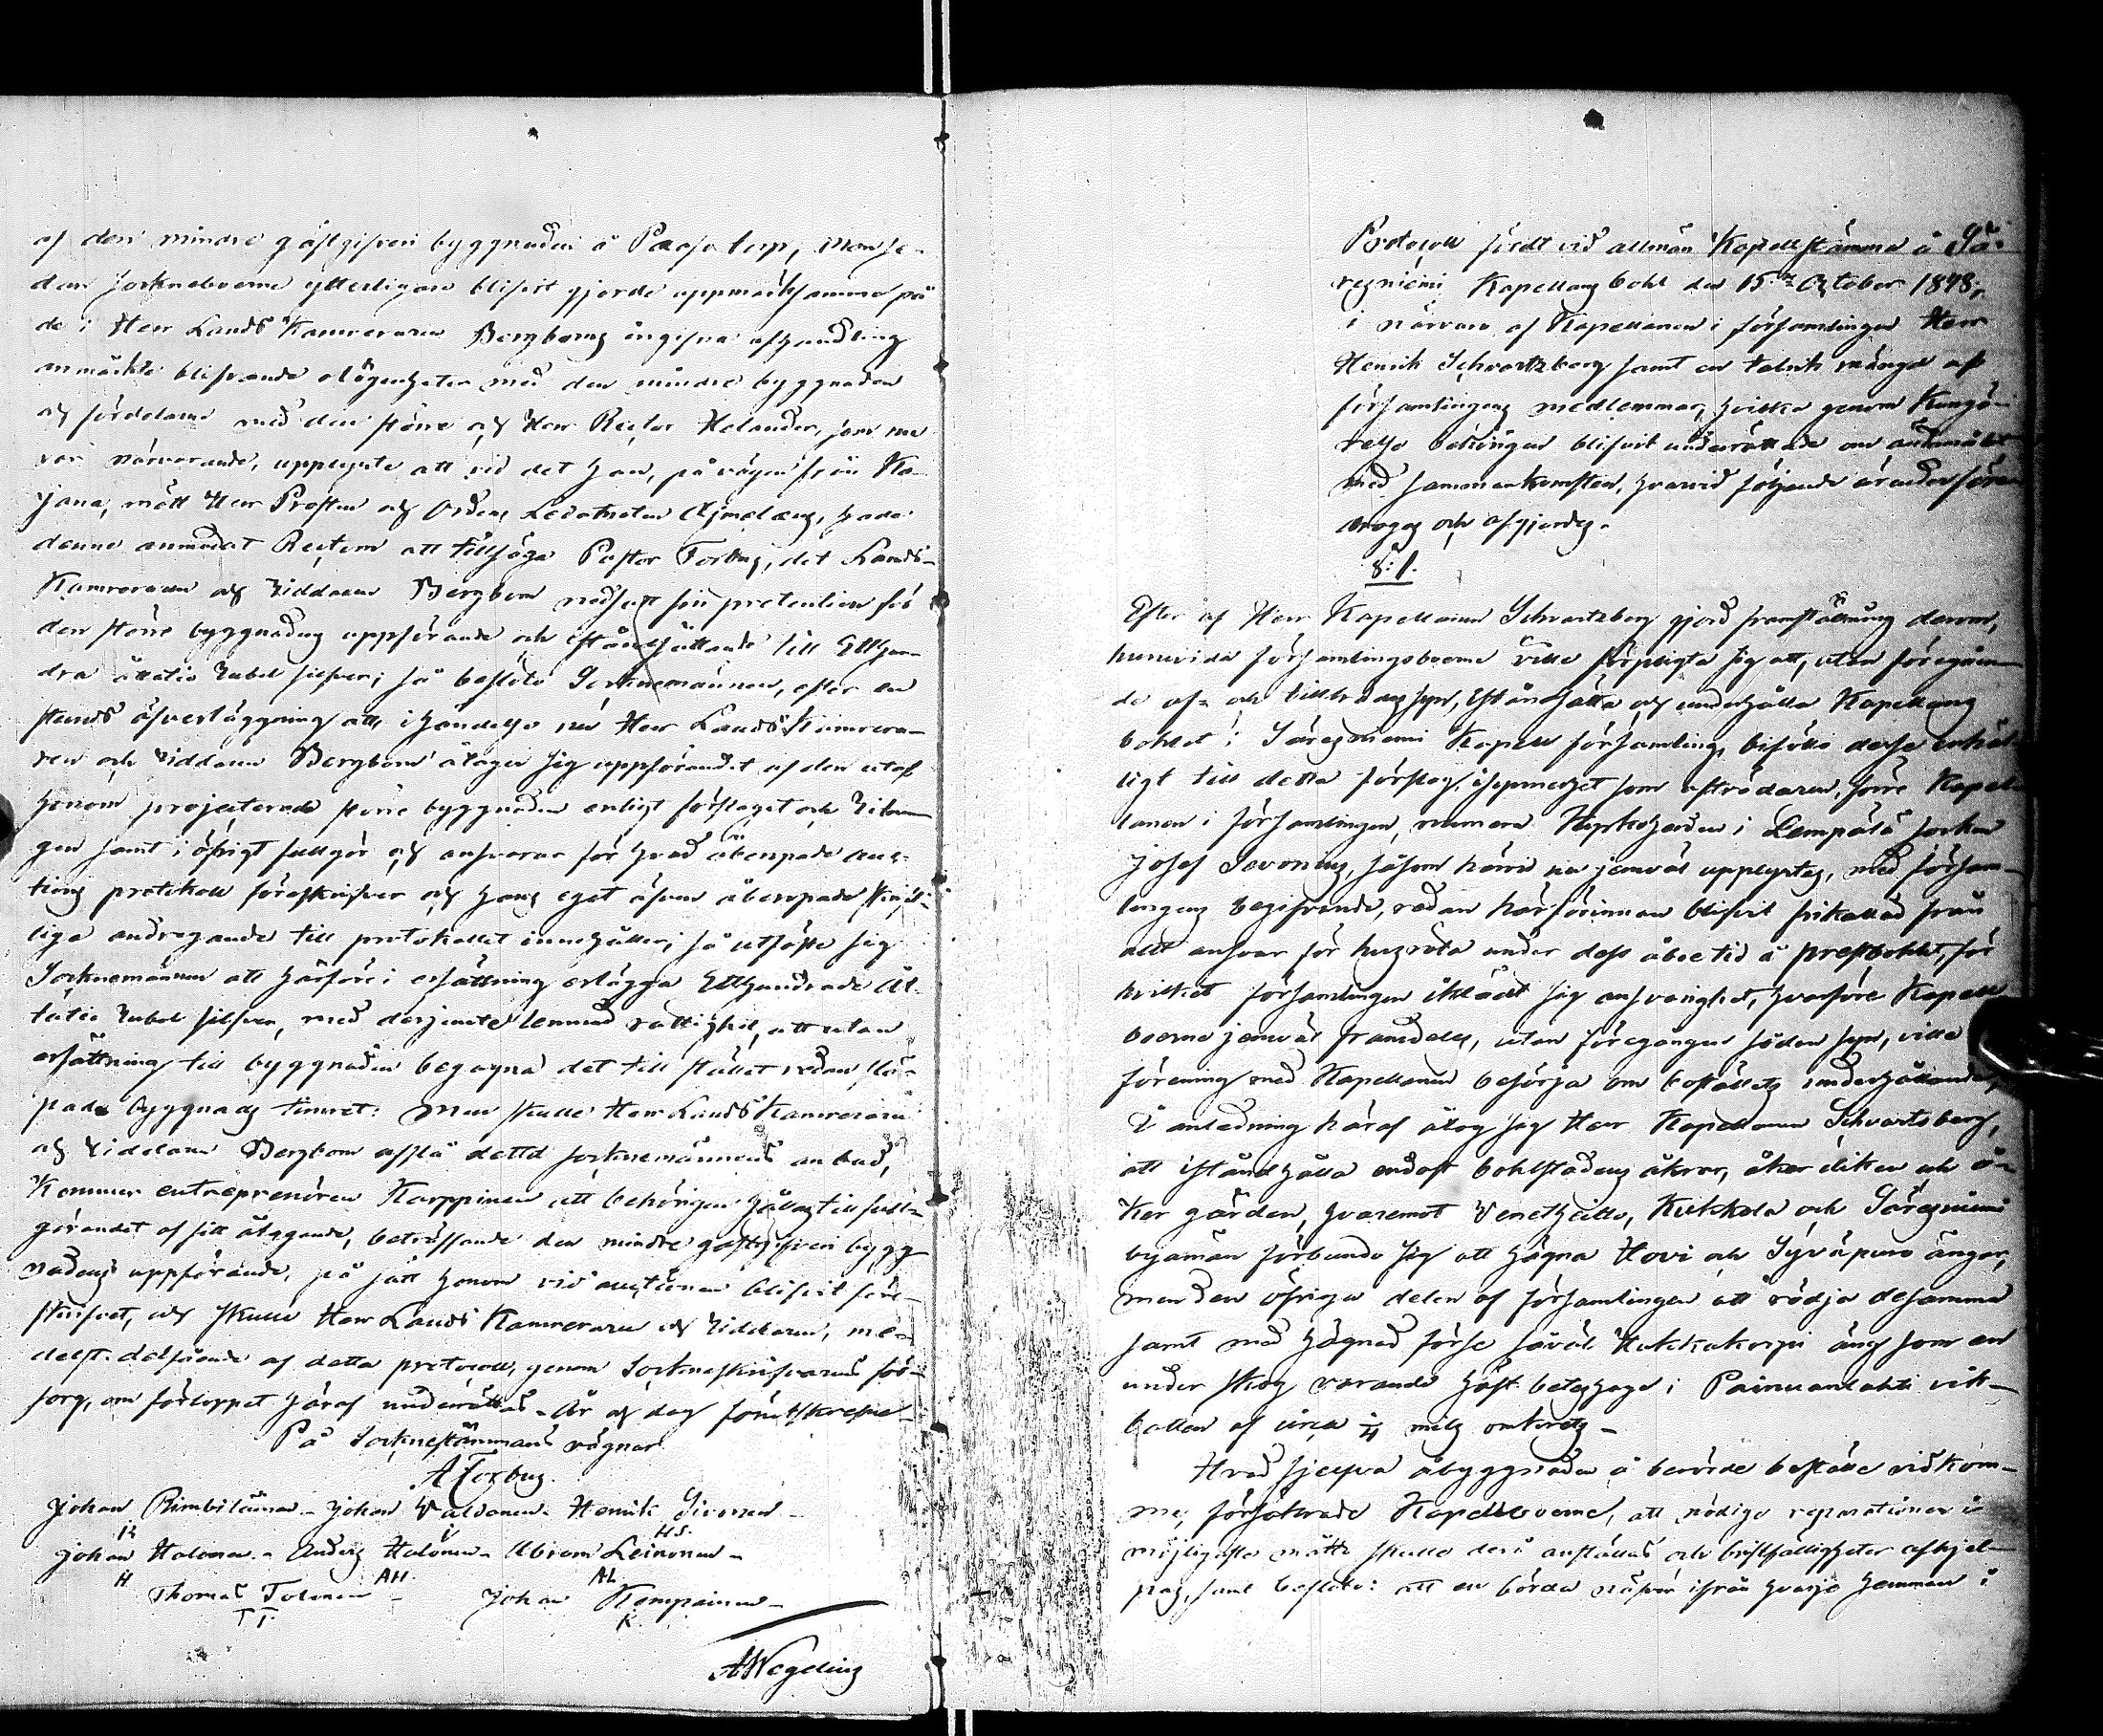 af den mindre gästgifveri byggnaden å Paaso torp, Men se-
dan Sockneboerne ytterligare blifvit gjorde uppmärksamma på
de i Herr Lands Kamreraren Bergboms ingifna afhandling
anmärkte blifvande olägenheter med den mindre byggnaden
och fördelarne med den större och Herr Rector Helander, som nu
var närvarande, upplyste att vid det han, på vägen från Ka-
jana, mött Herr Prosten och Ordens Ledamoten Ajmelæus, hade
denne anmodat Rectorn att tillsäga Pastor Forbus, det Lands-
Kamreraren och Riddaren Bergbom nedsatt sin pretention för
den större byggnadens uppförande och iståndsättande till Etthun-
dra åttatio Rubel silfver; så beslöto Socknemännen, efter en
stunds öfverläggning att, i händelse nu Herr Lands Kamrera-
ren och Riddaren Bergbom åtager sig uppförandet af den utaf
honom projecterade större byggnaden enligt förslaget och Ritnin
gen samt i öfrigt fullgör och ansvarar för hvad åberopade Auc-
tions protokoll föreskrifver och hans eget äfven åberopade skrift-
liga andragande till protokollet innehåller; så utfäste sig
Socknemännen att härföre i ersättning erlägga Etthundrade Åt-
tatio Rubel silfver, med derjemte lemnad rättighet, att utan
ersättning till byggnaden begagna det till stället redan slä-
pade byggnads timret: Men skulle Herr Lands Kamreraren
och Riddaren Bergbom afslå detta socknemännens anbud,
Kommer entreprenören Karppinen att behörigen hållas till full-
görandet af sitt åtagande, beträffande den mindre gästgifveri bygg
nadens uppförande, på sätt honom vid auctionen blifvit före-
skrifvet, och skulle Herr Lands Kamreraren och Riddaren, me-
delst delfående af detta protocoll, genom Sockneskrifvarens för-
sorg, om förloppet häraf underrättas. År och dag förutskrefne
På Sockneståmmans vägnar
A Forbus.
Johan Rimbiläinen - Johan Valdonen - Henrik Sivonen -
R V HS.
Johan Halonen - Anders Halonen - Abram Leinonen -
H AH. AL
Thomas Tolonen - Johan Kompainen -
TT K.
A Wegelius
Protocoll fördt vid allmän Kapellstämma å Sä-
resniemi Kapellans bohl den 15de October 1848,
i närvaro af Kapellanen i församlingen Herr
Henrik Schwartzberg samt en talrik mängd af
församlingens medlemmar, hvilka genom Kungö-
relse behörigen blifvit underrättade om ändamålet
med sammankomsten, hvarvid följande ärender före
drogos och afgjordes.
§: 1.
Efter af Herr Kapellanen Schwartzberg gjord framställning derom,
huruvida församlingsboerne ville förpligta sig att, utan föregåen-
de af- och tillträdes syn, iståndsätta och underhålla Kapellans
bohlet i Säresniemi Kapell församling, biföllo desse enhäl-
ligt till detta förslag, isynnerhet som afträdaren, förre Kapel-
lanen i församlingen, numera Kyrkoherden i Lempälä socken
Josef Sevonius, såsom härvid nu jemväl upplystes, med försam-
lingens begifvande, redan härförinnan blifvit frikallad från
allt ansvar för husröta under dess åboe tid å prestbohlet, för
hvilket församlingen iklädt sig ansvarighet, hvarföre Kapell
boerne jemväl framdeles, utan föregången sådan syn, ville i
förening med Kapellanen besörja om boställets underhållande,
I anledning häraf åtog sig Herr Kapellanen Schvartsberg,
att iståndhålla endast bohlstadens åkrar, åker diken och å-
ker gärden, hvaremot Venetheitto, Kukkola och Säresniemi
byamän förbundo sig att hägna Hovi och Syväpuro ängar,
men den öfriga delen af församlingen att rödja desamma
samt med hägnad förse såväl Kukkukorpi äng som en
under skog varande häst beteshage i Painuanlahti vik-
botten af circa ¼ mils omkrets -
Hvad sjelfva åbyggnaden å berörde boställe vidkom-
me, försäkrade Kapellboerne, att nödiga reparationer i
möjligaste måtto skulle derå anställas och bristfälligheter afhjel-
pas, samt beslöto: att en börda näfver ifrån hvarje hemman i